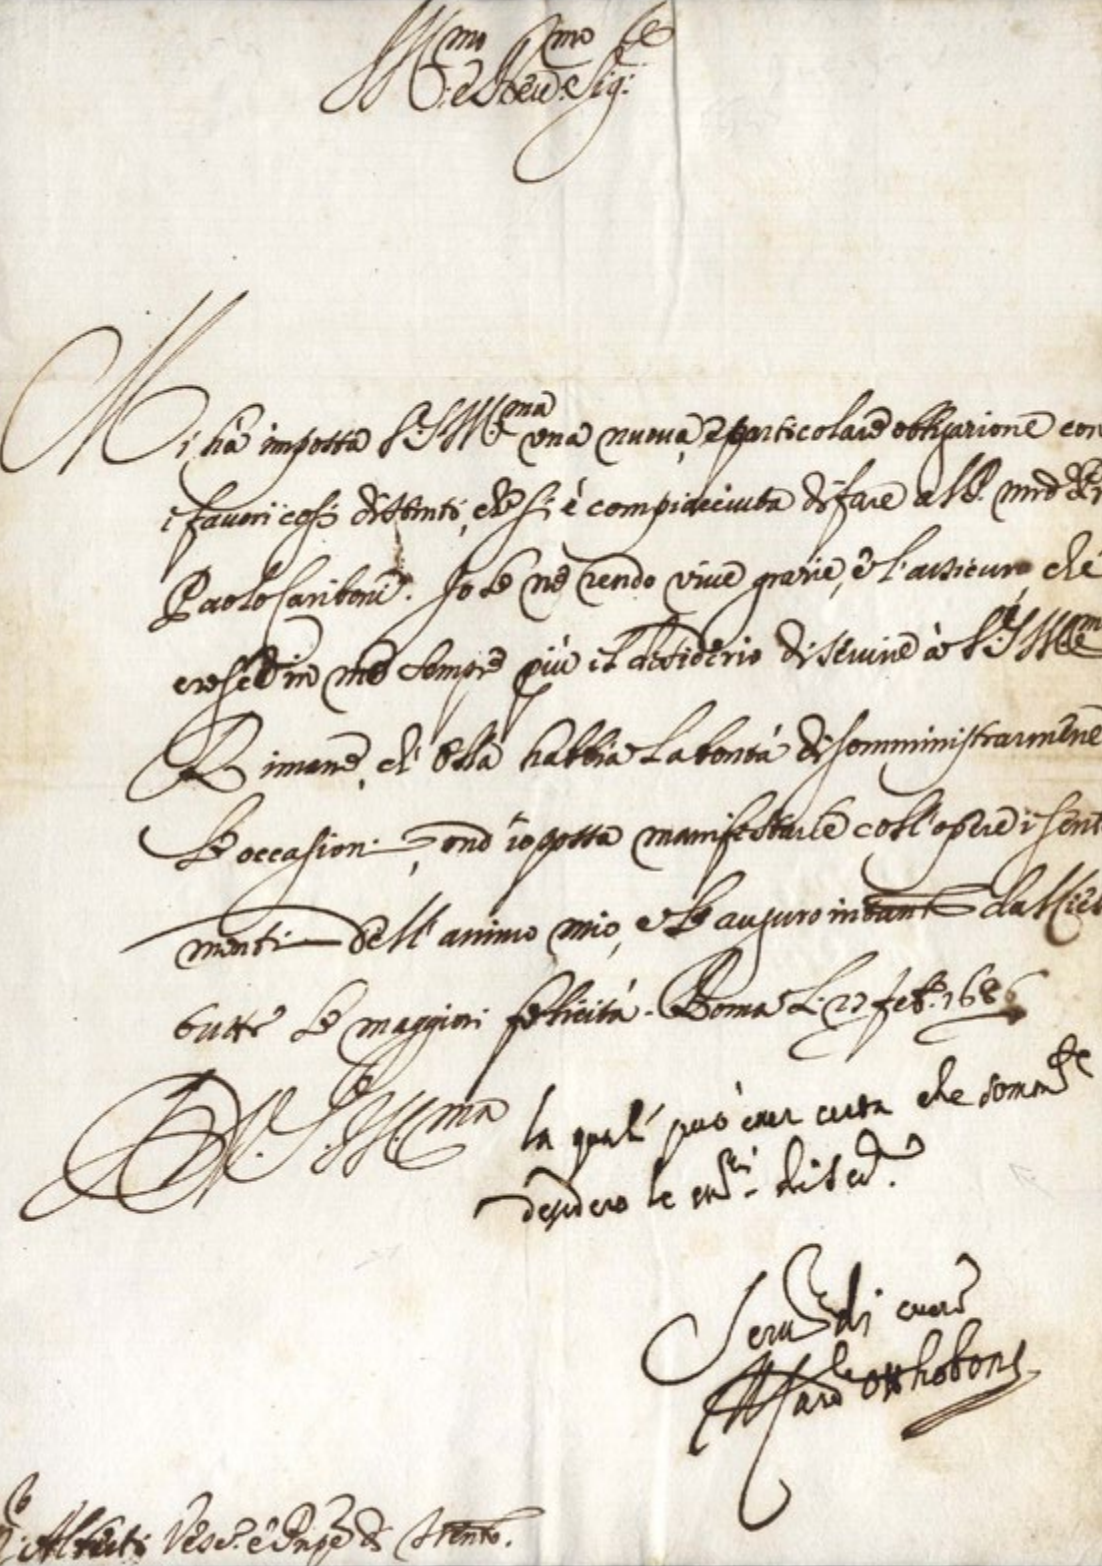 Ill.mo e Rev.mo Sig.re
Mi hà imposta V.S. Ill.ma una nuova, e particolare obligatione con
i favori così distinti, che si è compiacciuta di fare al
Paolo Cariboni. Io le ne rendo vive gratie, e l'assicuro che
cresce in me sempre più il desiderio di servire à V.S. Ill.ma
Rimane, ch'ella habbia la bontà di somministrarmene
le occasioni, ond'io possa manifestarle coll'opere i senti
menti dell'animo mio, e le auguro intanto dal Cielo
tutte le maggiori felicità. Roma li 27 feb.o 1686
D V.S. Ill.ma
la qual può esser certa che somm.te
desidero le di ser.
Serv.re di cuore
Il Card.le Otthoboni
Alberti Vesc.o e Pnpe di Trento.